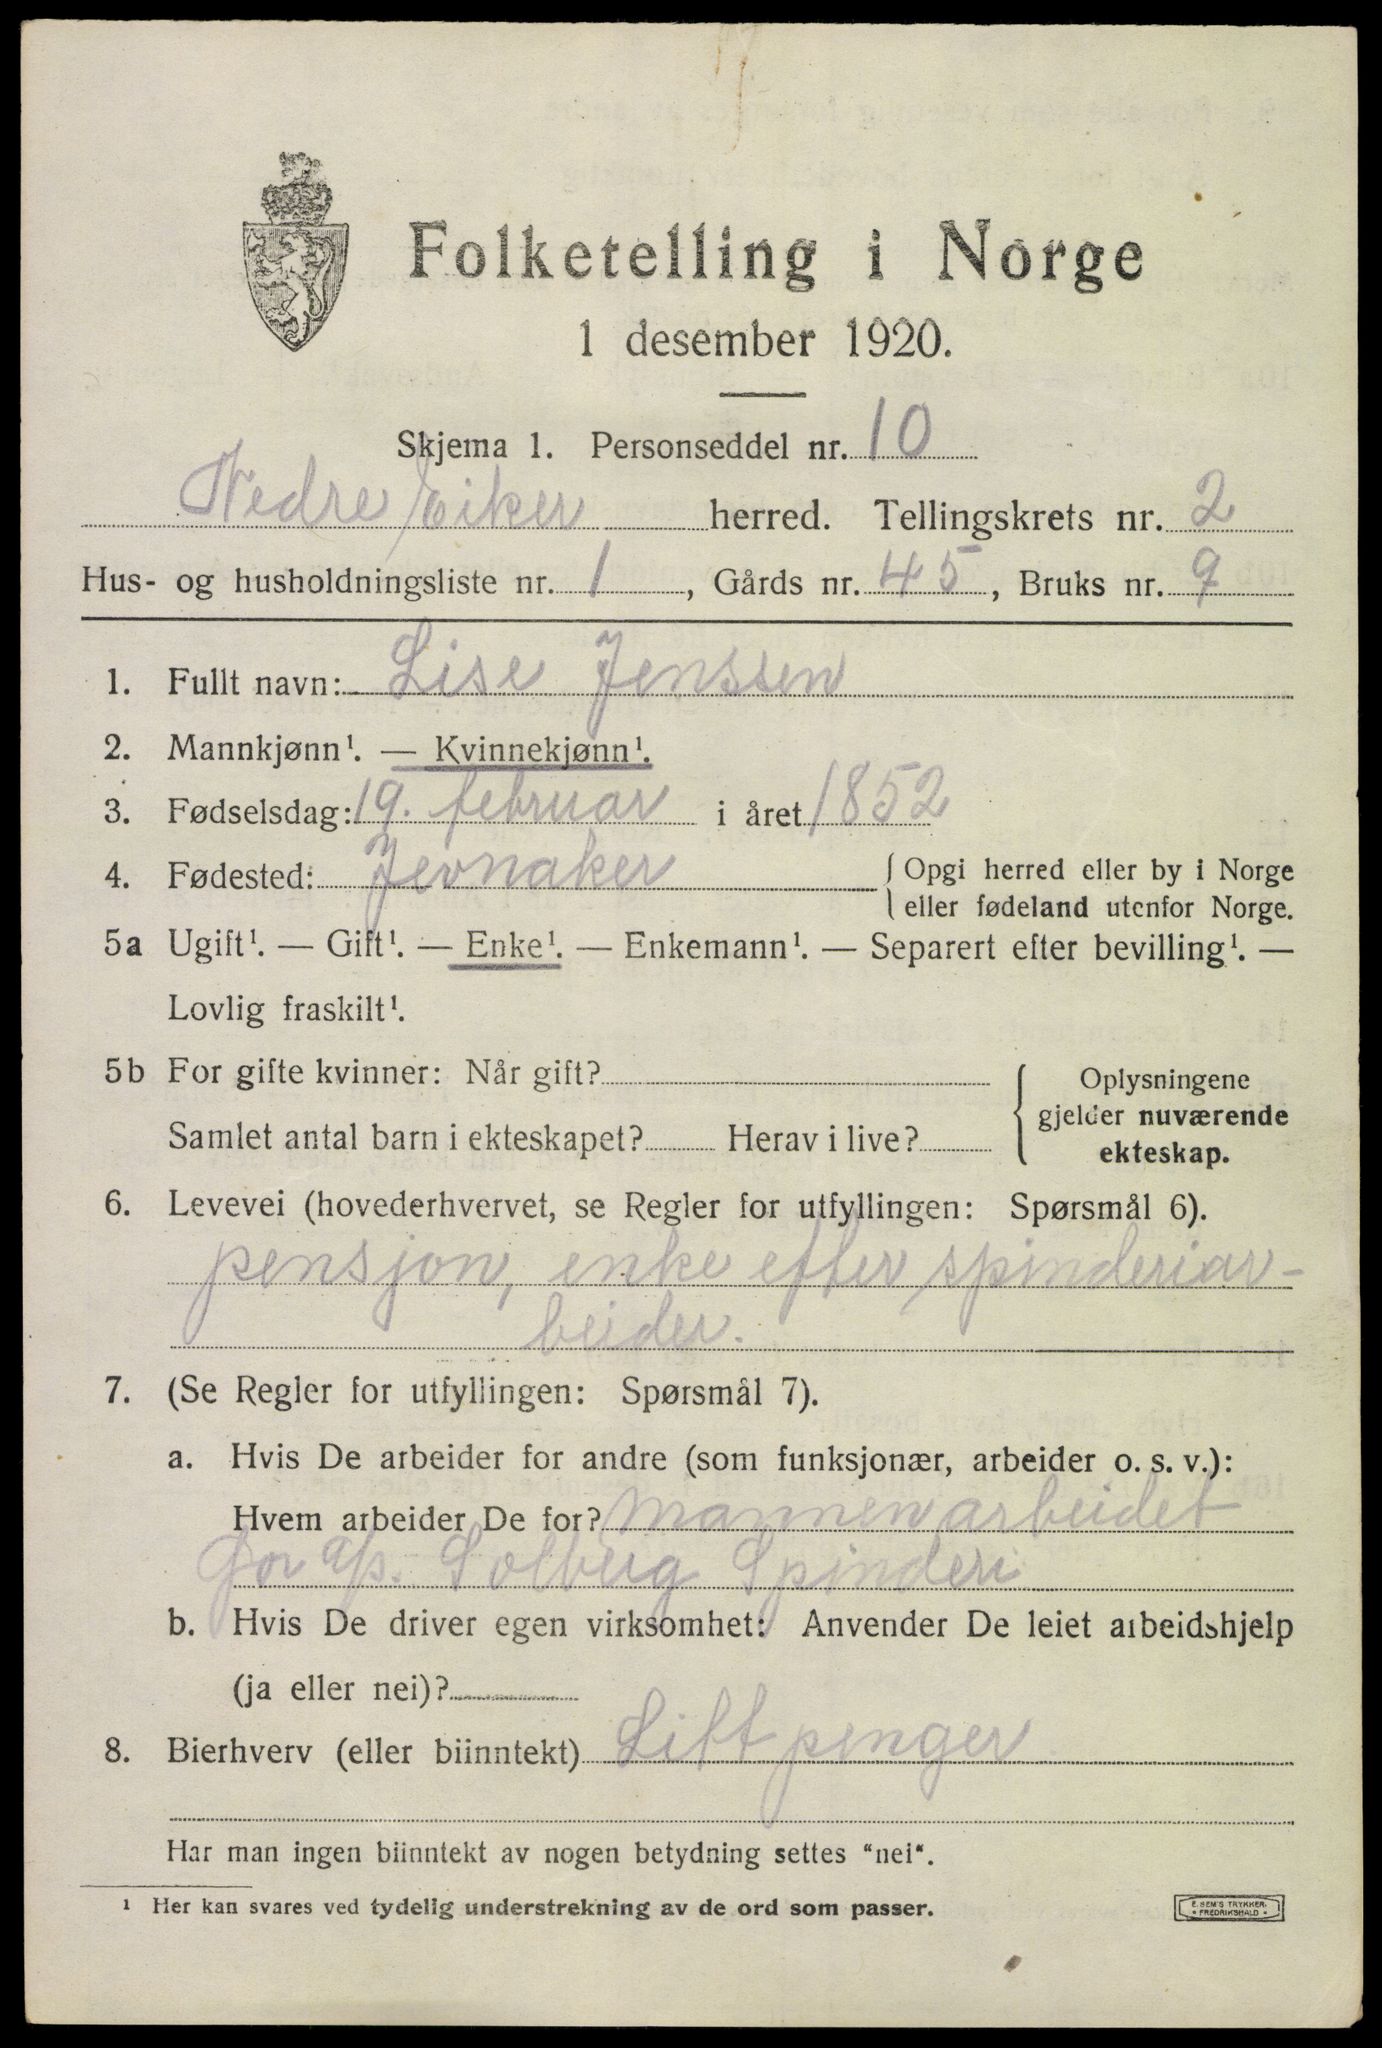 Folketelling i Norge
1 desember 1920.
Skjema 1. Personseddel nr. 10
Nedre Eiker herred. Tellingskrets nr. 2
Hus- og husholdningsliste nr. 1, Gårds nr. 45, Bruks nr. 9
1. Fullt navn: Lise Jenssen
2. Mannkjønn¹. — Kvinnekjønn¹.
3. Fødselsdag: 19. februar i året 1852
4. Fødested: Jevnaker { Opgi herred eller by i Norge
eller fødeland utenfor Norge.
5a Ugift¹. — Gift¹. — Enke¹. — Enkemann¹. — Separert efter bevilling¹. —
Lovlig fraskilt¹.
5b For gifte kvinner: Når gift?
Samlet antal barn i ekteskapet? Herav i live?
Oplysningene
gjelder nuværende
ekteskap.
6. Levevei (hovederhvervet, se Regler for utfyllingen: Spørsmål 6).
pensjon, enke efter spinderiar-
beider.
7. (Se Regler for utfyllingen: Spørsmål 7).
a. Hvis De arbeider for andre (som funksjonær, arbeider o. s. v.):
Hvem arbeider De for? mannen arbeidet
for a/s. Solberg Spinderi
b. Hvis De driver egen virksomhet: Anvender De leiet arbeidshjelp
(ja eller nei)?
8. Bierhverv (eller biinntekt) Litt penger
Har man ingen biinntekt av nogen betydning settes "nei".
¹ Her kan svares ved tydelig understrekning av de ord som passer.
E. SEM'S TRYKKERI
FREDRIKSHALD